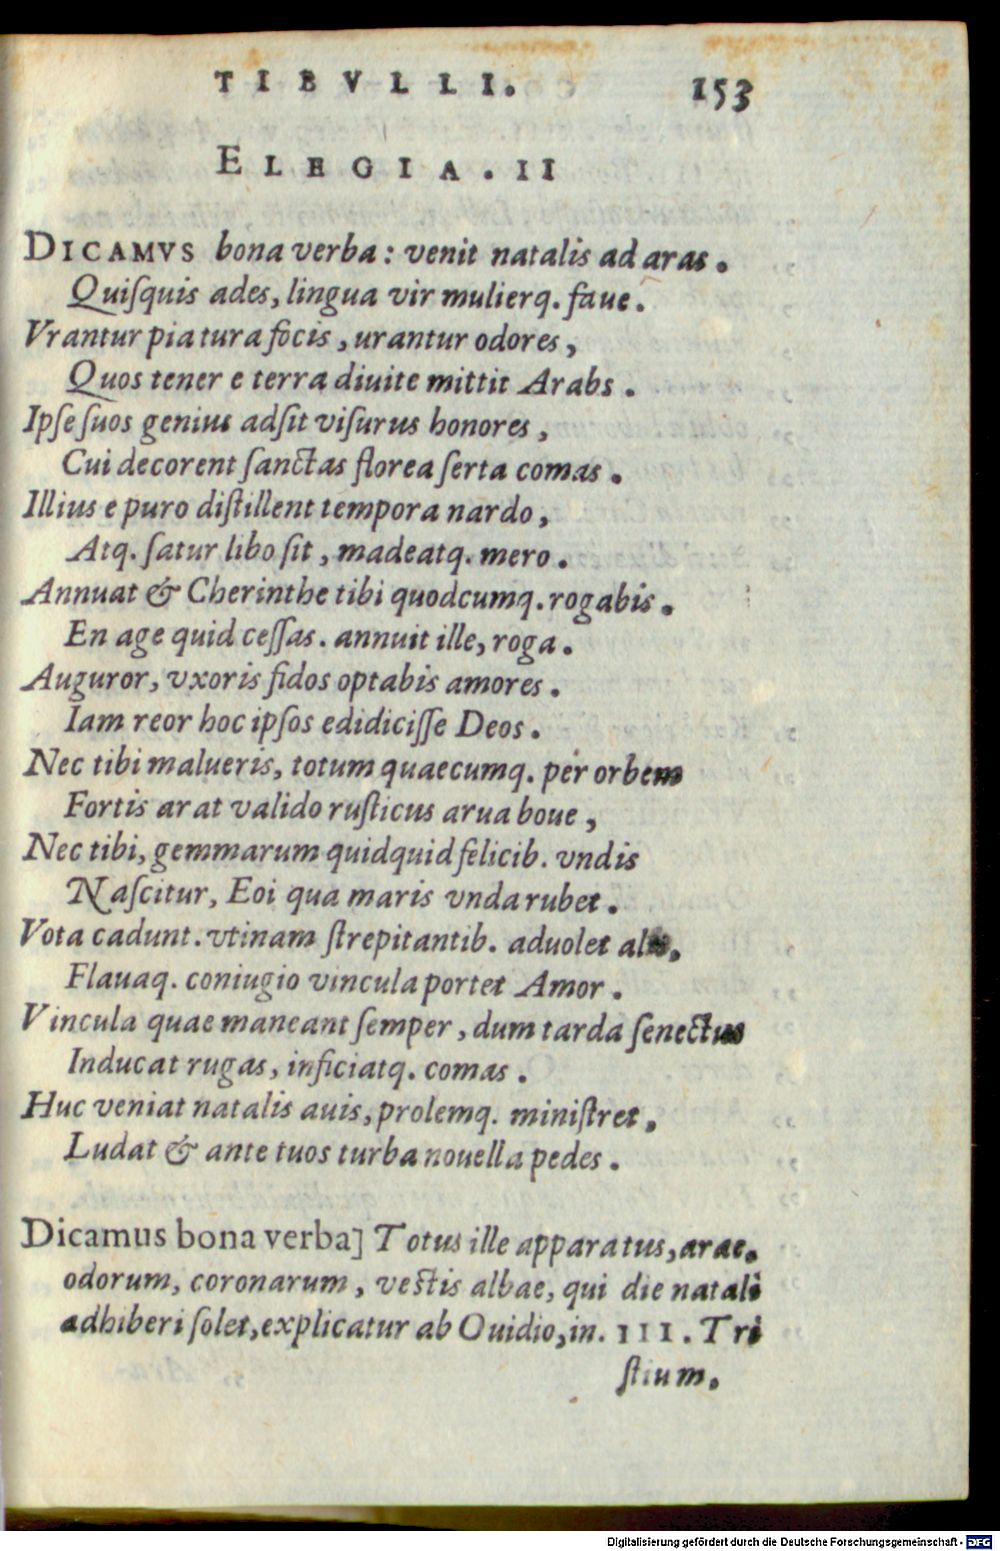 TIBVLLI. 153
ELEGIA. II
DICAMVS bona verba: venit natalis ad aras.
Quiſquis ades, lingua vir mulierq. faue.
Vrantur pia tura focis, urantur odores,
Quos tener e terra diuite mittit Arabs.
Ipſe ſuos genius adſit viſurus honores,
Cui decorent ſanctas florea ſerta comas.
Illius e puro diſtillent tempora nardo,
Atq. ſatur libo ſit, madeatq. mero.
Annuat & Cherinthe tibi quodcumq. rogabis.
En age quid ceſſas. annuit ille, roga.
Auguror, vxoris fidos optabis amores.
Iam reor hoc ipſos edidiciſſe Deos.
Nec tibi malueris, totum quaecumq. per orbem
Fortis arat valido ruſticus arua boue,
Nec tibi, gemmarum quidquid felicib. vndis
Naſcitur, Eoi qua maris vnda rubet.
Vota cadunt. vtinam ſtrepitantib. aduolet alis.
Flauaq. coniugio vincula portet Amor.
Vincula quae maneant ſemper, dum tarda ſenectus
Inducat rugas, inficiatq. comas.
Huc veniat natalis auis, prolemq. miniſtret.
Ludat & ante tuos turba nouella pedes.
Dicamus bona verba] Totus ille apparatus, arae.
odorum, coronarum, veſtis albae, qui die natali
adhiberi ſolet, explicatur ab Ouidio, in. III. Tri
ſtium.
Digitalisierung gefördert durch die Deutsche Forschungsgemeinschaft - DFG